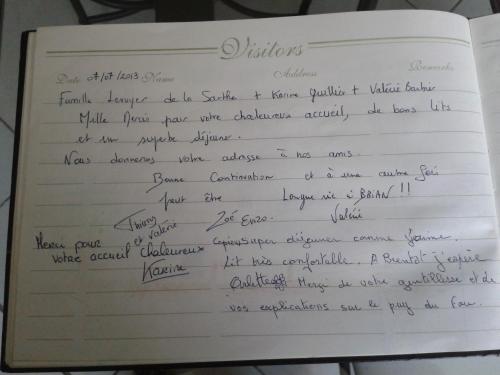 Visitors
Date 07/07/2013 Name Address Remarks
Famille de la Sarthe + Karine + Valérie Barbier
Mille Mercis pour votre chaleureux accueil, de bons lits
et un superbe déjeuner.
Nous donnerons votre adresse à nos amis.
Bonne Continuation et à une autre fois
peut être Longue vie à BRIAN !!
Thierry et Valérie Zoé Enzo. Valérie
Merci pour votre accueil chaleureux
Karine
copieux super déjeuner comme j'aime.
Lit très confortable. A Bientot j'espère
Merci de votre gentillesse et de
vos explications sur le puy du fou.